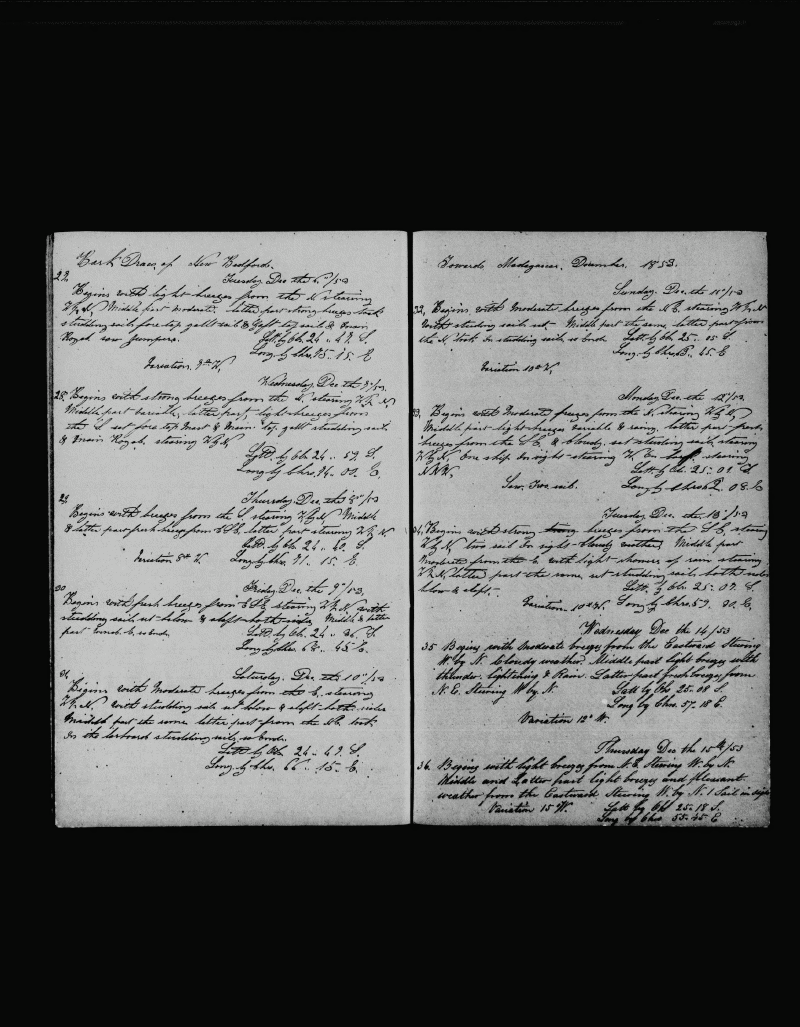 Bark Draco of New Bedford.
Tuesday Dec the 6th/53
Begins with light breezes from the N stearing
W by N, Middle part moderate, latter part strong breeze took
studding sail fore top gallt sail & Gaft top sail & Main
Royal saw Jumpers.
Latt. by Ob. 24 .. 47. S.
Long. by Chro. 75 - 15 E
Variation
Wednesday Dec the 7/53
28. Begins with strong breezes from the N. stearing W by N
Middle part variable, latter part light breezes from
the S set fore top Mast & Main top gallt studding sail
& Main Royal. stearing W by N
Latt. by Ob 24 .. 59. S.
Long by Chro. 74 .. 00. E.
29. Thursday Dec. the 8th/53
Begins with breezes from the S. stearing W by N Middle
& latter part fresh breezes from ESE, latter part stearing W by N
Latt. by Ob. 24 .. 40. S.
Variation Long by Chro. 71. 15. E.
30 Friday Dec. the 9th/53,
Begins with fresh breezes from ESE stearing W by N with
studding sail set below & aloft both sides Middle & latter
part
Latt. by Ob. 24 .. 36. S.
Long by Chro. 68 .. 45 E.
31. Saturday. Dec the 10th/53
Begins with Moderate breezes from the E. stearing
W by N. with studding sail set below & aloft both sides
Middle part the same latter part from the NE. took
in the larboard studding sails
Latt by Ob 24 .. 49. S.
Long. by Chro. 66 .. 15. E.
Towards Madagascar. December. 1853.
Sunday. Dec. the 11th/53
32, Begins with Moderate breezes from the N E. stearing W by N
With studing sail set Middle part the same latter part from
the N took in studding sail
Latt. by Ob. 25 .. 05 S.
Long by Chro. 45 E
Variation 10°W,
Monday Dec. the 12th/53.
33, Begins with Moderate breezes from the N. stearing W by N,
Middle part light breezes variable & rainy, latter part fresh
breezes from the S E. & Cloudy, set studding sail, stearing
W by N, One ship in sight stearing stearing
NNW,
Latt by Ob. 25 - 01 S
Saw, two sail. Long by Chro. 08 E
Tuesday Dec. the 13th/53
34, Begins with strong breezes from the S E, stearing
W by N, two sail in sight cloudy weather, Middle part
Moderate from the E with light showers of rain stearing
W by N, latter part the same, set studding sails both sides
below & aloft.
Latt. by Ob. 25 - 07. S.
Variation 10°W. Long by Chro. 59. 30. E,
Wednesday Dec the 14/53
35 Begins with moderate breezes from the Eastward Stering
W by N. Cloudy weather. Middle part light breezes with
thunder. lightning & Rain. Latter part fresh breezes from
N. E. Stering W by N. Latt by Obs 25-08 S.
Long by Chro. 57. 18 E.
Variation 12° W.
Thursday Dec the 15th/53
36. Begins with light breezes from N. E Stering W. by N.
Middle and Latter part light breezes and pleasant
weather from the Eastward Stering W. by N. 1 Sail in sight
Variation 15° W. Latt by Obs 25-18 S.
Long by Chro 55-45 E